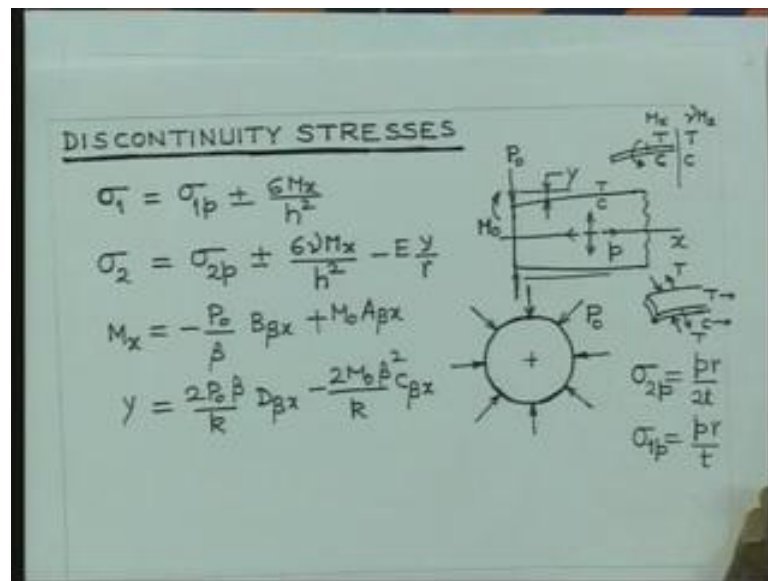 DISCONTINUITY STRESSES
σ₁ = σ₁p ± 6Mx/h²
σ₂ = σ₂p ± 6νMx/h² - E y/r
Mx = - P₀/β Bβx + M₀Aβx
y = 2P₀β/k Dβx - 2M₀β²/k Cβx
Mx νMx
T T
C C
P₀
y
T
C
M₀
p
x
P₀
+
T
T→
C→
T
σ₂p = pr/2t
σ₁p = pr/t